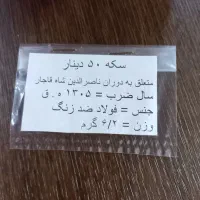 سکه ۵۰ دینار
متعلق به دوران ناصرالدین شاه قاجار
سال ضرب = ۱۳۰۵ ه . ق
جنس = فولاد ضد زنگ
وزن = ۶/۲ گرم